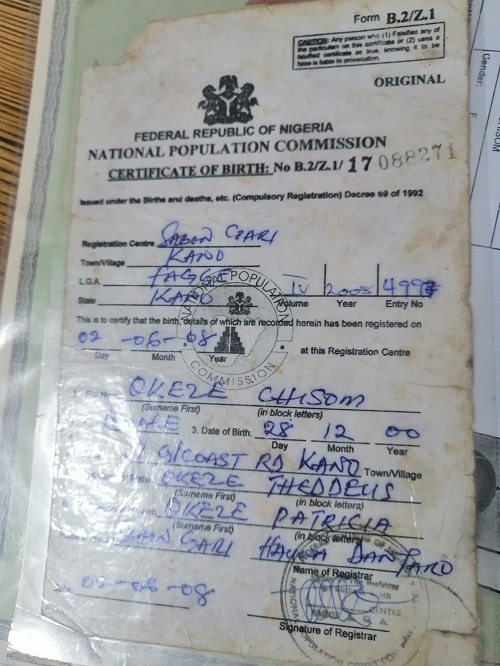 Form B.2/Z.1
CAUTION: Any person who (1) Falsifies any of
the particulars on this certificate or (2) uses a
falsified certificate as true, knowing it to be
false is liable to prosecution.
Gender:
ORIGINAL
FEDERAL REPUBLIC OF NIGERIA
NATIONAL POPULATION COMMISSION
CERTIFICATE OF BIRTH: No B.2/Z.1/ 17 088271
Issued under the Births and deaths, etc. (Compulsory Registration) Decree 69 of 1992
Registration Centre SABON GARI
Town/Village KANO
L.G.A. FAGGE IV 2008
State KANO Volume Year Entry No
This is to certify that the birth, details of which are recorded herein has been registered on
02 -06 -08
Day Month Year at this Registration Centre
NATIONAL POPULATION COMMISSION
OKEZE CHISOM
(Surname First) (in block letters)
3. Date of Birth: 28 12 00
Day Month Year
COAST RD KANO Town/Village
OKEZE THEDDEUS
(Surname First) (in block letters)
OKEZE PATRICIA
(Surname First) (in block letters)
GARI
Name of Registrar
02-06-08
Signature of Registrar